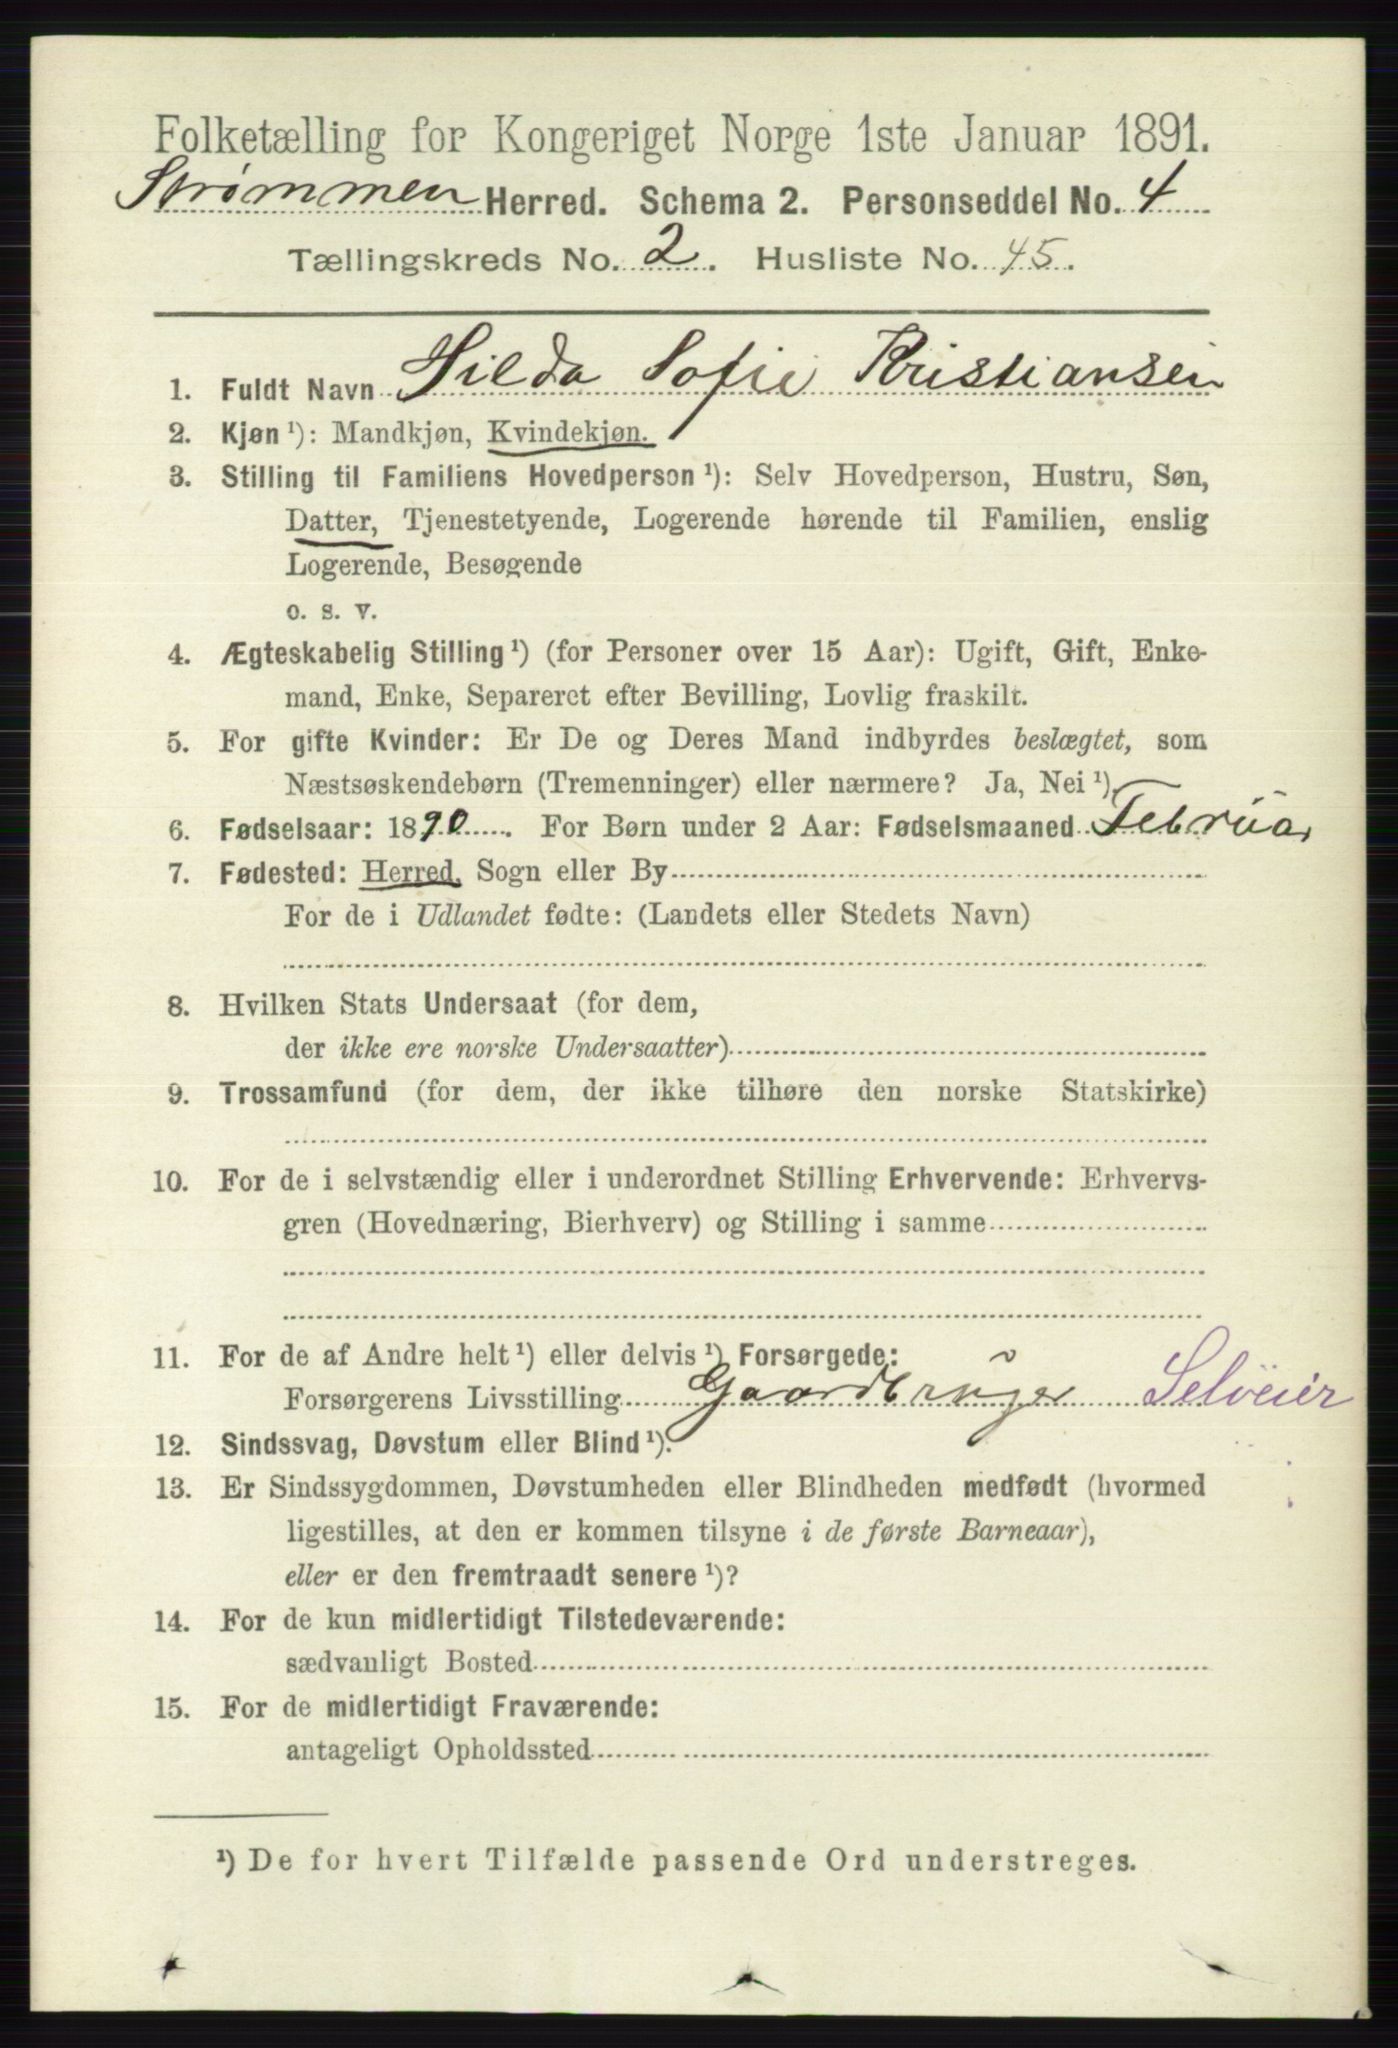 Folketælling for Kongeriget Norge 1ste Januar 1891.
Strømmen Herred. Schema 2. Personseddel No. 4
Tællingskreds No. 2. Husliste No. 45.
1. Fuldt Navn Hilda Sofie Kristiansen
2. Kjøn ¹): Mandkjøn, Kvindekjøn.
3. Stilling til Familiens Hovedperson ¹): Selv Hovedperson, Hustru, Søn,
Datter, Tjenestetyende, Logerende hørende til Familien, enslig
Logerende, Besøgende
o. s. v.
4. Ægteskabelig Stilling ¹) (for Personer over 15 Aar): Ugift, Gift, Enke-
mand, Enke, Separeret efter Bevilling, Lovlig fraskilt.
5. For gifte Kvinder: Er De og Deres Mand indbyrdes beslægtet, som
Næstsøskendebørn (Tremenninger) eller nærmere? Ja, Nei ¹).
6. Fødselsaar: 1890. For Børn under 2 Aar: Fødselsmaaned Februar
7. Fødested: Herred, Sogn eller By
For de i Udlandet fødte: (Landets eller Stedets Navn)
8. Hvilken Stats Undersaat (for dem,
der ikke ere norske Undersaatter)
9. Trossamfund (for dem, der ikke tilhøre den norske Statskirke)
10. For de i selvstændig eller i underordnet Stilling Erhvervende: Erhvervs-
gren (Hovednæring, Bierhverv) og Stilling i samme
11. For de af Andre helt ¹) eller delvis ¹) Forsørgede:
Forsørgerens Livsstilling Gaardbruger Selveier
12. Sindssvag, Døvstum eller Blind ¹).
13. Er Sindssygdommen, Døvstumheden eller Blindheden medfødt (hvormed
ligestilles, at den er kommen tilsyne i de første Barneaar),
eller er den fremtraadt senere ¹)?
14. For de kun midlertidigt Tilstedeværende:
sædvanligt Bosted
15. For de midlertidigt Fraværende:
antageligt Opholdssted
¹) De for hvert Tilfælde passende Ord understreges.